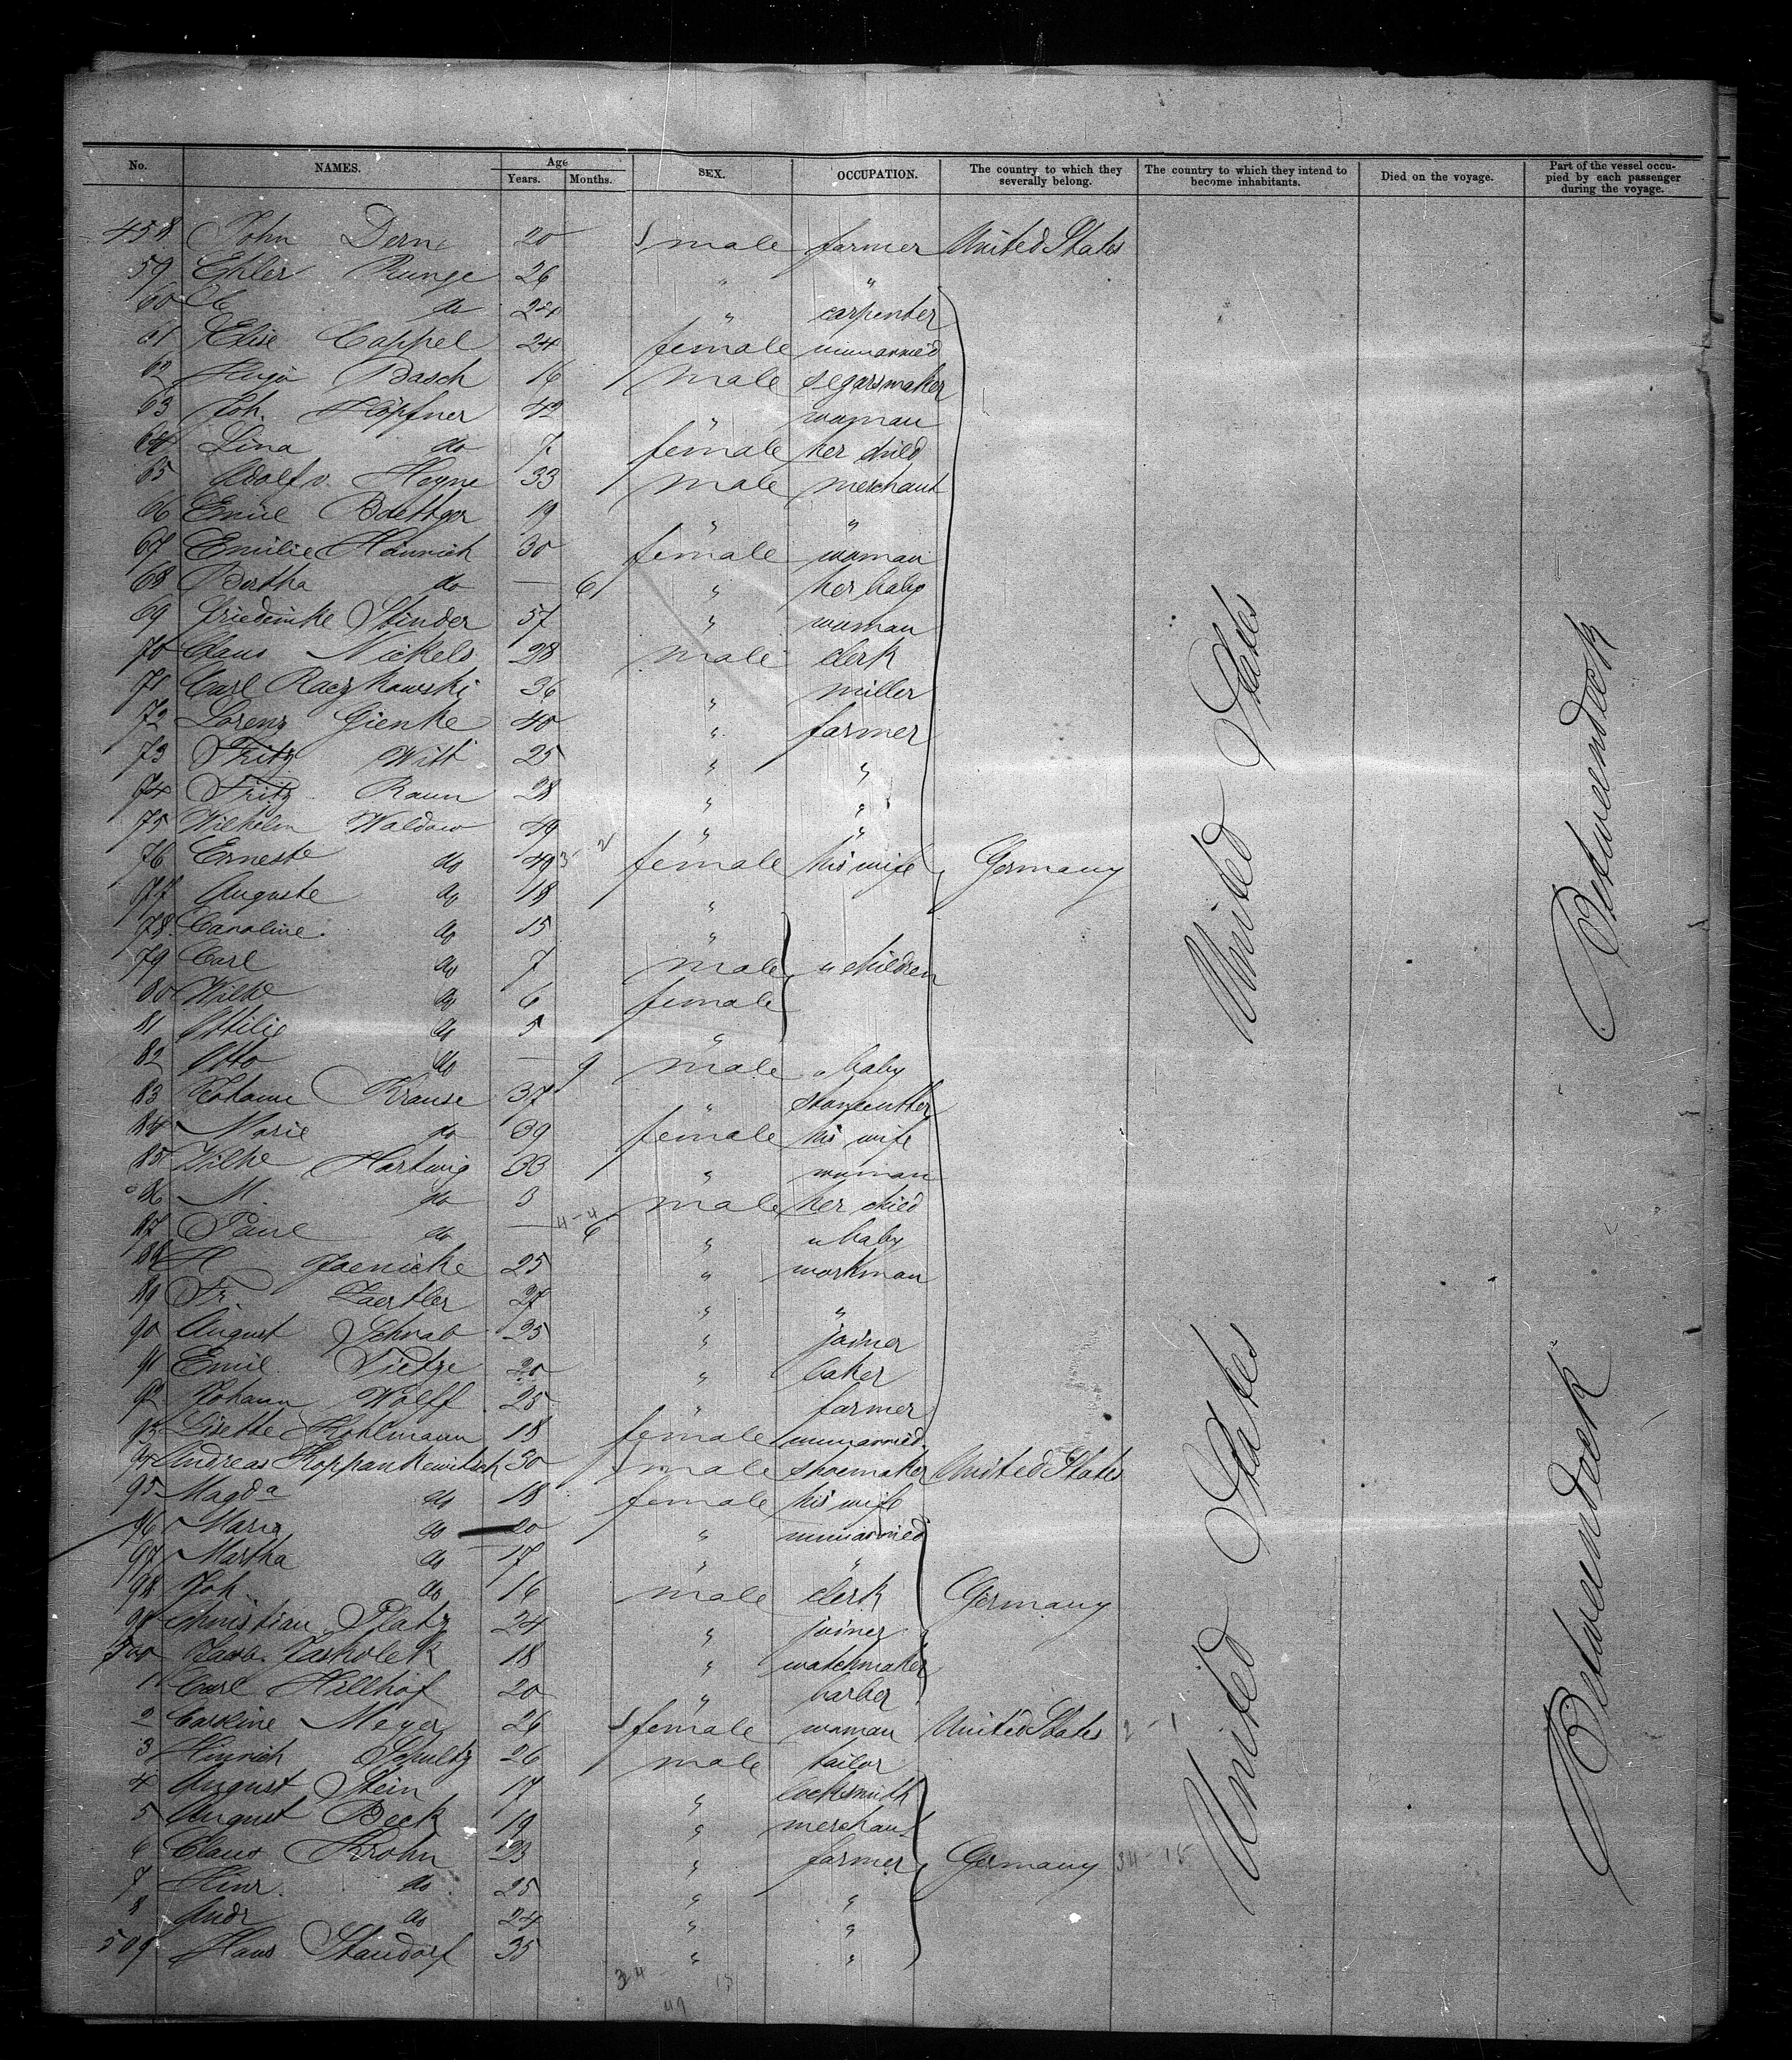 No. NAMES. Age Years. Months. SEX. OCCUPATION. The country to which they severally belong. The country to which they intend to become inhabitants. Died on the voyage. Part of the vessel occupied by each passenger during the voyage.
458 John Dern 20 male farmer United States
59 Ehler Runge 26 " "
60 do 24 " carpenter
61 Elise Cappel 24 female unmarried
62 Hugo Basch 16 male segarsmaker
63 Joh. Höpfner 42 " woman
64 Lina do 7 female her child
65 Adolf v. Heyne 33 male merchant
66 Emil Boettger 19 " "
67 Emilie Hinrich 30 female woman
68 Bertha do — 6 " her baby
69 Friederike Stinder 57 " woman
70 Claus Nickels 28 male clerk
71 Carl Raczkowski 36 " miller
72 Lorenz Gienke 40 " farmer
73 Fritz Witt 25 " "
74 Fritz Raun 28 " "
75 Wilhelm Waldow 49 " "
76 Erneste do 49 female his wife Germany
77 Auguste do 18 "
78 Caroline do 15 "
79 Carl do 7 male " children
80 Wilhe do 6 female
81 Ottilie do 5 "
82 Otto do — 9 male " baby
83 Johann Krause 37 " stonecutter
84 Marie do 39 female his wife
85 Wilhe Hartwig 33 " woman
86 M. do 3 male her child
87 Paul do — 6 " baby
88 H Jaenicke 25 " workman
89 Fr. Zaertler 27 " "
90 August Schwab 25 " joiner
91 Emil Tietze 20 " baker
92 Johann Wolff 25 " farmer
93 Lisette Kohlmann 18 female unmarried
94 Andreas Koppankewitsch 30 male shoemaker United States
95 Magda do 18 female his wife
96 Maria do 20 " unmarried
97 Martha do 17 " "
98 Joh. do 16 male clerk Germany
99 Christian Platz 24 " joiner
500 Jacob Jaskolek 18 " watchmaker
1 Carl Hillhof 20 " barber
2 Caroline Meyer 26 female woman United States 2-1
3 Hinrich Schultz 26 male tailor
4 August Stein 17 " locksmith
5 August Beck 19 " merchant
6 Claus Krohn 23 " farmer Germany 34-15
7 Hinr. do 25 " "
8 Andr do 24 " "
509 Hans Standorf 35 " "
34 15
49
United States
United States
Betweendeck
Betweendeck